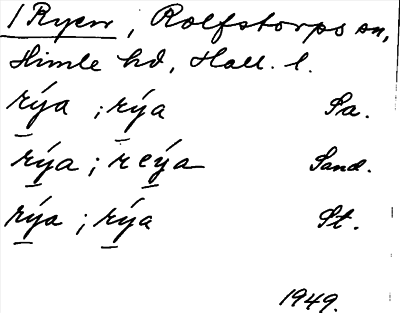 1 Ryen, Rolfstorps sn,
Himle hd, Hall. l.
rýa ; rýa Sa.
rýa ; reýa Sand.
rýa ; rýa St.
1949.